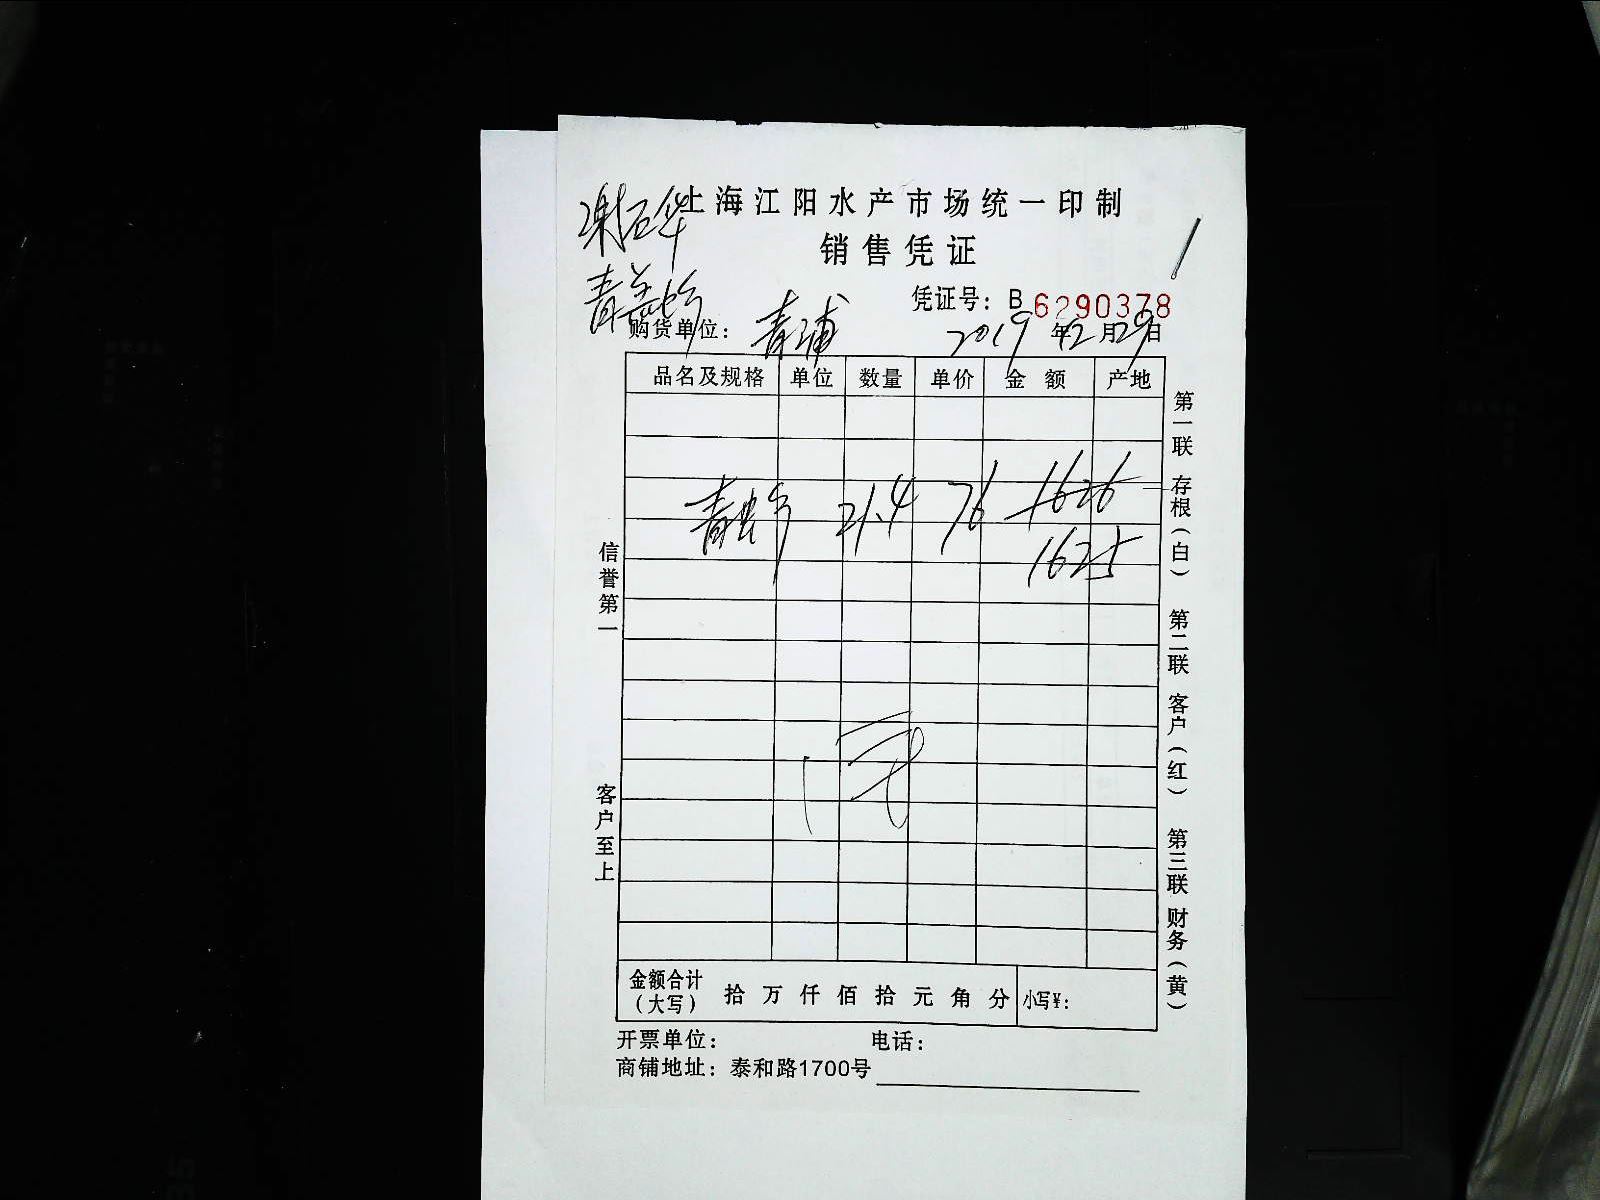 谢石华
上海江阳水产市场统一印制
销售凭证
凭证号：B 6290378
购货单位：青浦 2019年12月29日
品名及规格 单位 数量 单价 金 额 产地
21.4 76 1626
1625
信誉第一
客户至上
第一联 存根（白） 第二联 客户（红） 第三联 财务（黄）
金额合计（大写） 拾 万 仟 佰 拾 元 角 分 小写¥：
开票单位： 电话：
商铺地址：泰和路1700号